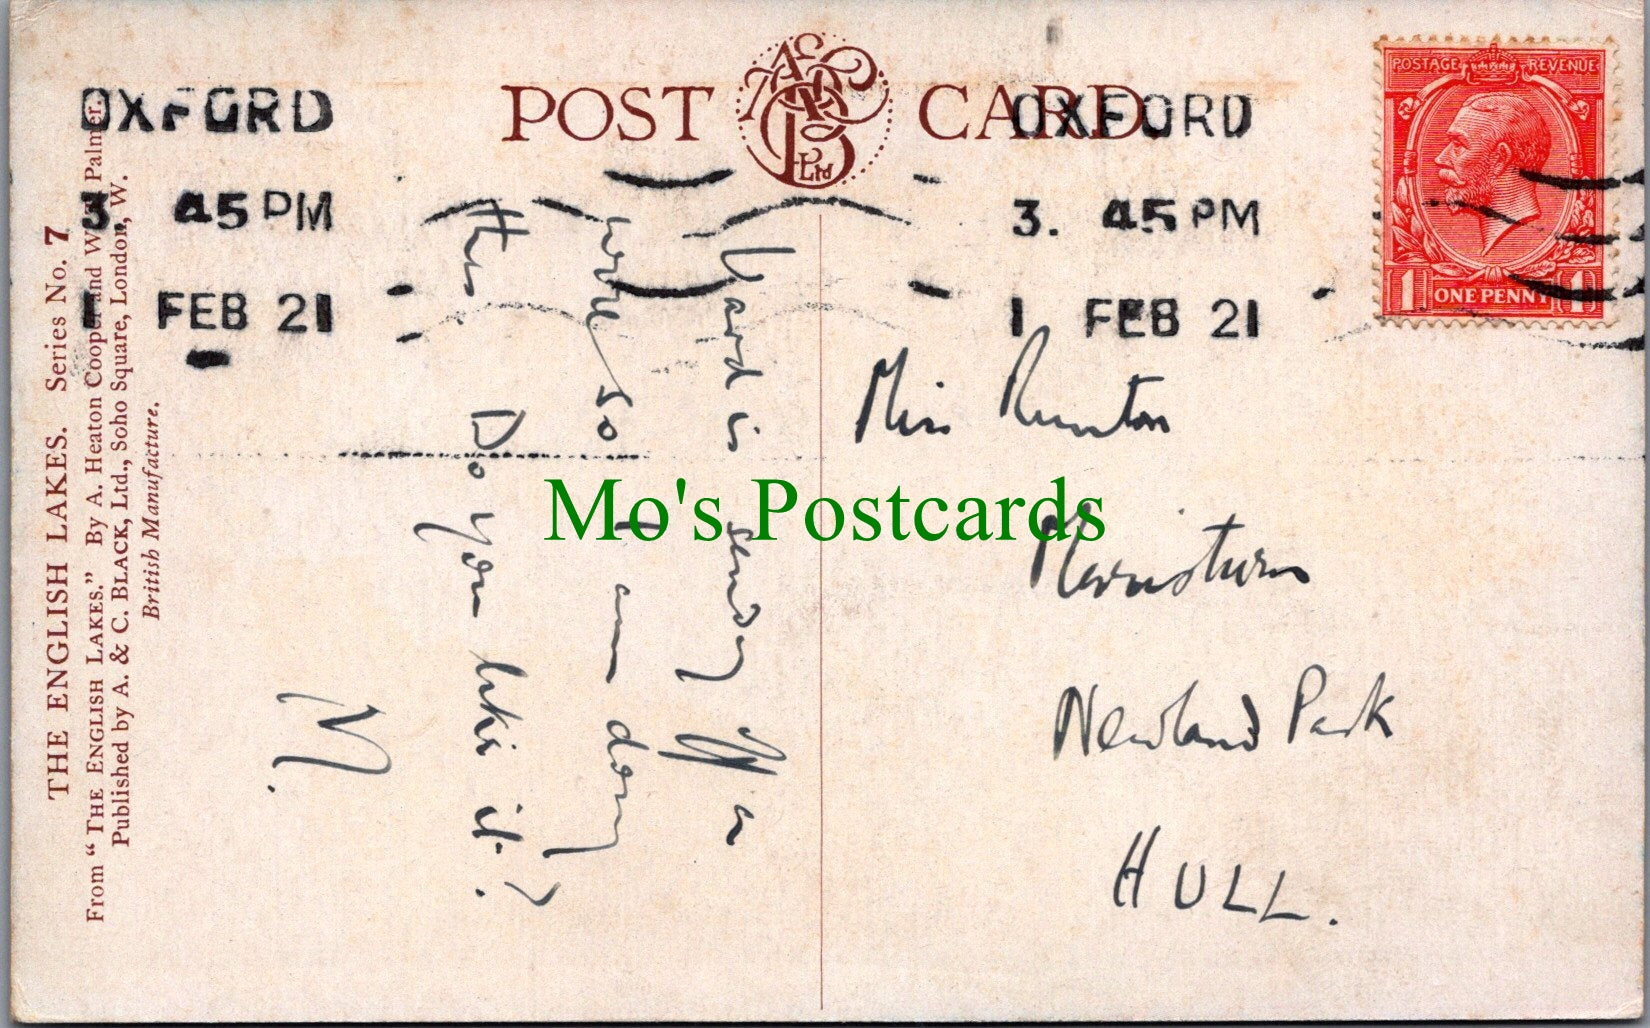 POST CARD
A&CB Ltd
OXFORD
3. 45 PM
1 FEB 21
OXFORD
3. 45 PM
1 FEB 21
POSTAGE REVENUE
1 ONE PENNY 1
THE ENGLISH LAKES. Series No. 7
From "THE ENGLISH LAKES." By A. Heaton Cooper and W. T. Palmer.
Published by A. & C. BLACK, Ltd., Soho Square, London, W.
British Manufacture.
Yard is sending off a
wire so I am doing
this. Do you like it?
M.
Miss Runton
Newland Park
HULL.
Mo's Postcards